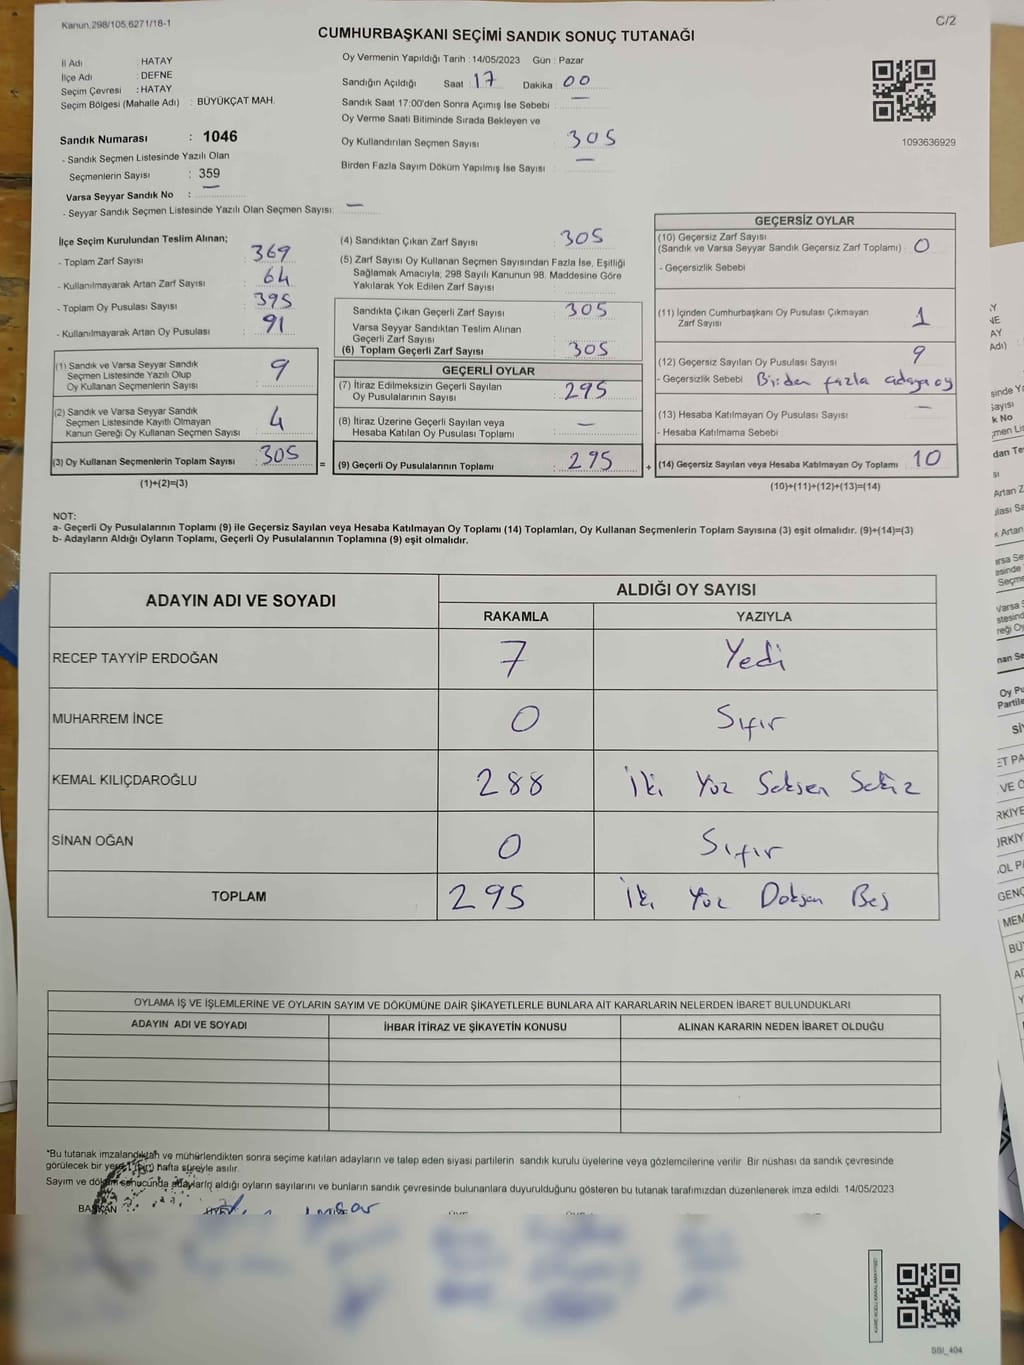 Kanun.298/105,6271/18-1
C/2
CUMHURBAŞKANI SEÇİMİ SANDIK SONUÇ TUTANAĞI
İl Adı : HATAY
İlçe Adı : DEFNE
Seçim Çevresi : HATAY
Seçim Bölgesi (Mahalle Adı) : BÜYÜKÇAT MAH.
Sandık Numarası : 1046
- Sandık Seçmen Listesinde Yazılı Olan
Seçmenlerin Sayısı : 359
Varsa Seyyar Sandık No : —
- Seyyar Sandık Seçmen Listesinde Yazılı Olan Seçmen Sayısı: —
Oy Vermenin Yapıldığı Tarih : 14/05/2023 Gün : Pazar
Sandığın Açıldığı Saat : 17 Dakika : 00
Sandık Saat 17:00'den Sonra Açımış İse Sebebi : —
Oy Verme Saati Bitiminde Sırada Bekleyen ve
Oy Kullandırılan Seçmen Sayısı : 305
Birden Fazla Sayım Döküm Yapılmış İse Sayısı : —
1093636929
İlçe Seçim Kurulundan Teslim Alınan;
- Toplam Zarf Sayısı : 369
- Kullanılmayarak Artan Zarf Sayısı : 64
- Toplam Oy Pusulası Sayısı : 395
- Kullanılmayarak Artan Oy Pusulası : 91
(1) Sandık ve Varsa Seyyar Sandık
Seçmen Listesinde Yazılı Olup
Oy Kullanan Seçmenlerin Sayısı : 9
(2) Sandık ve Varsa Seyyar Sandık
Seçmen Listesinde Kayıtlı Olmayan
Kanun Gereği Oy Kullanan Seçmen Sayısı : 4
(3) Oy Kullanan Seçmenlerin Toplam Sayısı : 305
(1)+(2)=(3)
(4) Sandıktan Çıkan Zarf Sayısı : 305
(5) Zarf Sayısı Oy Kullanan Seçmen Sayısından Fazla İse, Eşitliği
Sağlamak Amacıyla; 298 Sayılı Kanunun 98. Maddesine Göre
Yakılarak Yok Edilen Zarf Sayısı :
Sandıkta Çıkan Geçerli Zarf Sayısı : 305
Varsa Seyyar Sandıktan Teslim Alınan
Geçerli Zarf Sayısı :
(6) Toplam Geçerli Zarf Sayısı : 305
GEÇERLİ OYLAR
(7) İtiraz Edilmeksizin Geçerli Sayılan
Oy Pusulalarının Sayısı : 295
(8) İtiraz Üzerine Geçerli Sayılan veya
Hesaba Katılan Oy Pusulası Toplamı : —
= (9) Geçerli Oy Pusulalarının Toplamı : 295 +
GEÇERSİZ OYLAR
(10) Geçersiz Zarf Sayısı
(Sandık ve Varsa Seyyar Sandık Geçersiz Zarf Toplamı) : 0
- Geçersizlik Sebebi
(11) İçinden Cumhurbaşkanı Oy Pusulası Çıkmayan
Zarf Sayısı 1
(12) Geçersiz Sayılan Oy Pusulası Sayısı 9
- Geçersizlik Sebebi Birden fazla adaya oy
(13) Hesaba Katılmayan Oy Pusulası Sayısı —
- Hesaba Katılmama Sebebi
(14) Geçersiz Sayılan veya Hesaba Katılmayan Oy Toplamı 10
(10)+(11)+(12)+(13)=(14)
NOT:
a- Geçerli Oy Pusulalarının Toplamı (9) ile Geçersiz Sayılan veya Hesaba Katılmayan Oy Toplamı (14) Toplamları, Oy Kullanan Seçmenlerin Toplam Sayısına (3) eşit olmalıdır. (9)+(14)=(3)
b- Adayların Aldığı Oyların Toplamı, Geçerli Oy Pusulalarının Toplamına (9) eşit olmalıdır.
ADAYIN ADI VE SOYADI
ALDIĞI OY SAYISI
RAKAMLA YAZIYLA
RECEP TAYYİP ERDOĞAN 7 Yedi
MUHARREM İNCE 0 Sıfır
KEMAL KILIÇDAROĞLU 288 İki Yüz Seksen Sekiz
SİNAN OĞAN 0 Sıfır
TOPLAM 295 İki Yüz Doksan Beş
OYLAMA İŞ VE İŞLEMLERİNE VE OYLARIN SAYIM VE DÖKÜMÜNE DAİR ŞİKAYETLERLE BUNLARA AİT KARARLARIN NELERDEN İBARET BULUNDUKLARI
ADAYIN ADI VE SOYADI İHBAR İTİRAZ VE ŞİKAYETİN KONUSU ALINAN KARARIN NEDEN İBARET OLDUĞU
*Bu tutanak imzalandıktan ve mühürlendikten sonra seçime katılan adayların ve talep eden siyasi partilerin sandık kurulu üyelerine veya gözlemcilerine verilir. Bir nüshası da sandık çevresinde
görülecek bir yere 1 (bir) hafta süreyle asılır.
Sayım ve döküm sonucunda adayların aldığı oyların sayılarını ve bunların sandık çevresinde bulunanlara duyurulduğunu gösteren bu tutanak tarafımızdan düzenlenerek imza edildi. 14/05/2023
BAŞKAN
SSI_404